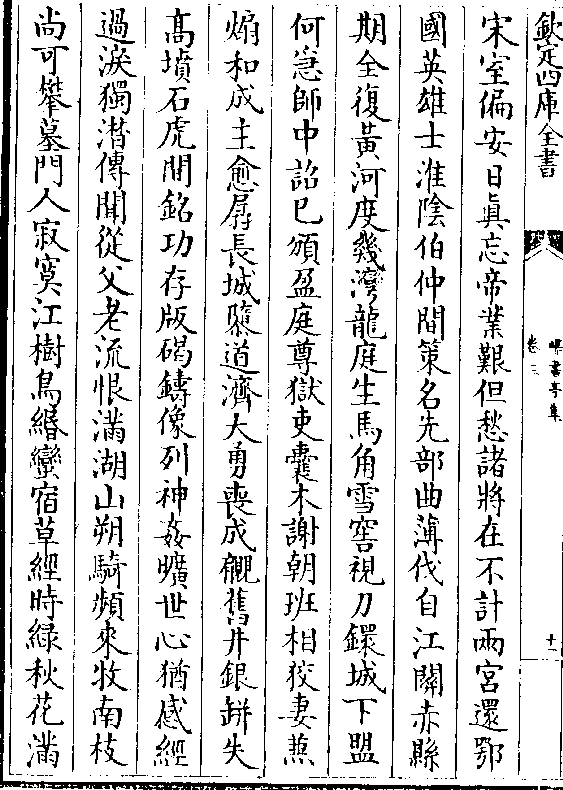 欽定四庫全書
曝書亭集
卷三
十一
宋室偏安日眞忘帝業艱但愁諸將在不計兩宮還鄂
國英雄士淮陰伯仲間策名先部曲薄伐自江關赤縣
期全復黃河度幾灣龍庭生馬角雪窖視刀鐶城下盟
何急師中詔已頒盈庭尊獄吏囊木謝朝班相狡妻兼
煽和成主愈孱長城隳道濟大勇喪成覸舊井銀缾失
髙墳石虎閒銘功存版碣鑄像列神姦曠世心猶感經
過淚獨潸傳聞從父老流恨滿湖山朔騎頻來牧南枝
尚可攀墓門人寂寞江樹鳥緡蠻宿草經時緑秋花滿